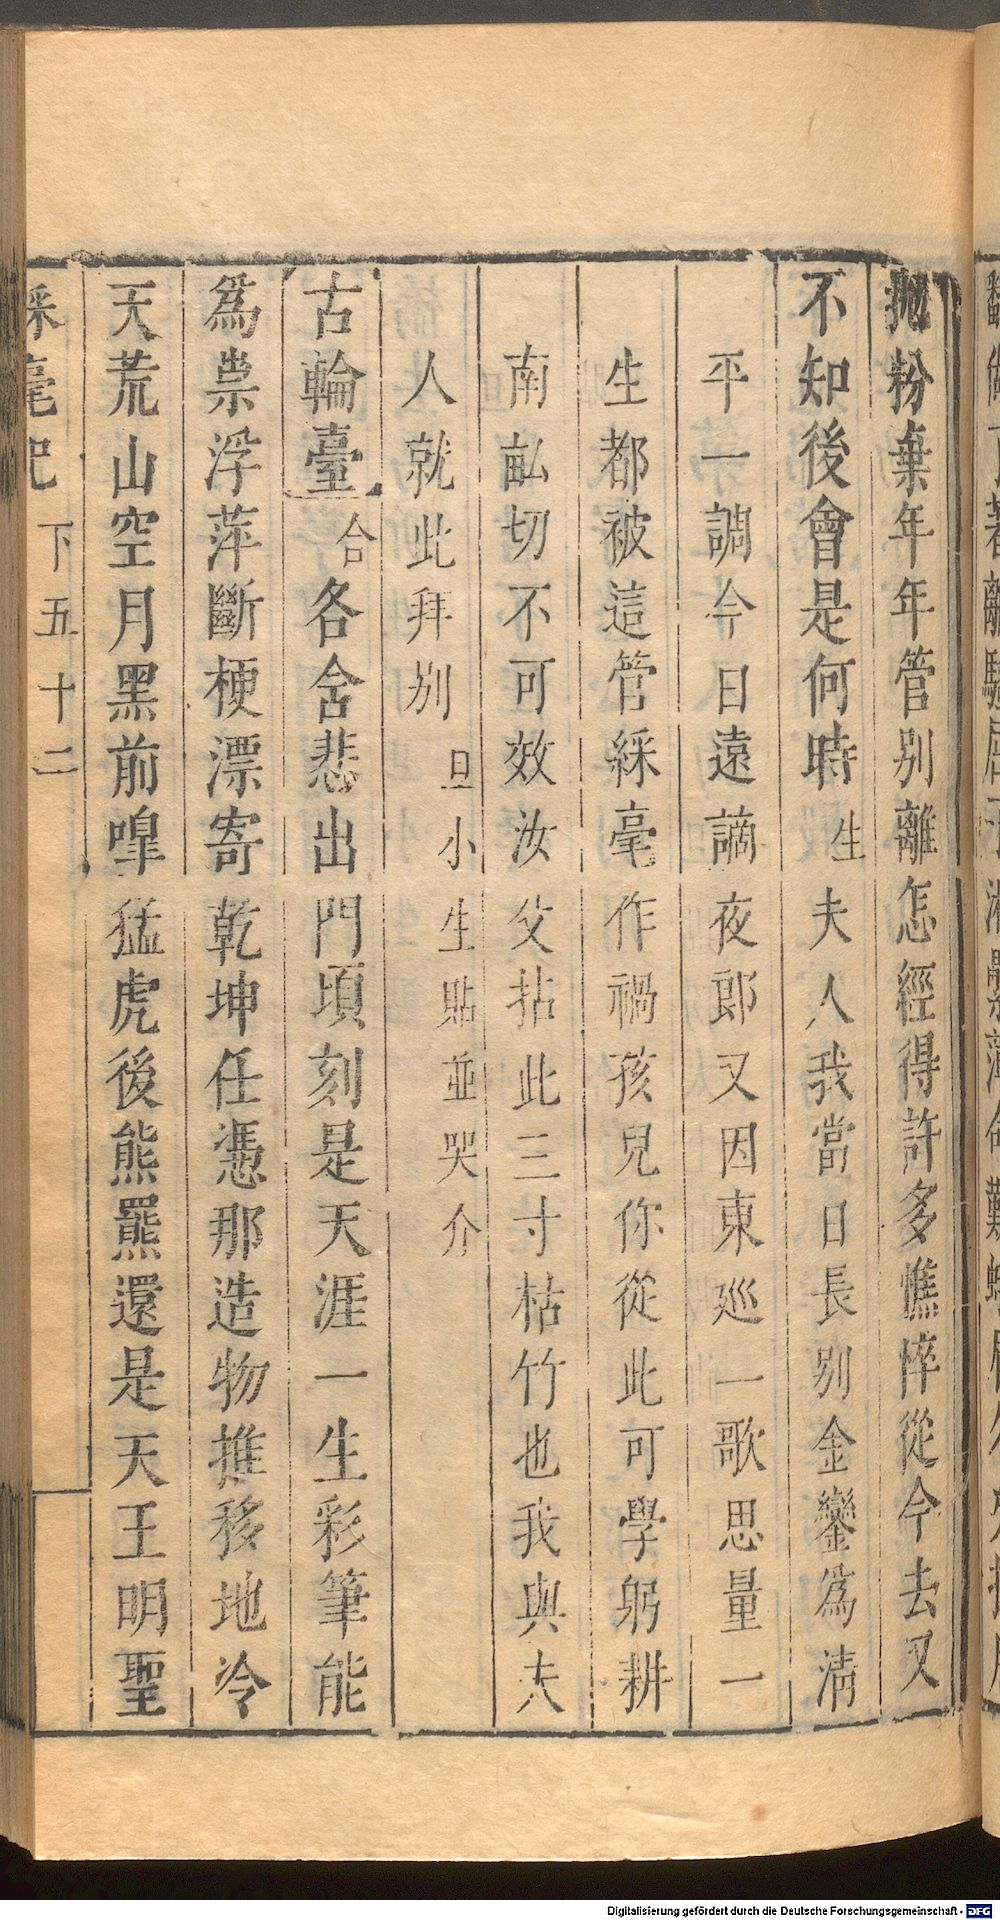 拋粉棄年年管别離怎經得許多憔悴從今去又
不知後會是何時生夫人我當日長别金鑾爲清
平一調今日遠謫夜郎又因東廵一歌思量一
生都被這管綵毫作禍孩兒你從此可學躬耕
南畝切不可效汝父拈此三寸枯竹也我與夫
人就此拜别旦小生貼並哭介
古輪臺合各含悲出門頃刻是天涯一生彩筆能
爲祟浮萍斷梗漂寄乾坤任憑那造物推移地冷
天荒山空月黑前嘷猛虎後熊羆還是天王明聖
綵毫記 下 五十二
Digitalisierung gefördert durch die Deutsche Forschungsgemeinschaft - DFG